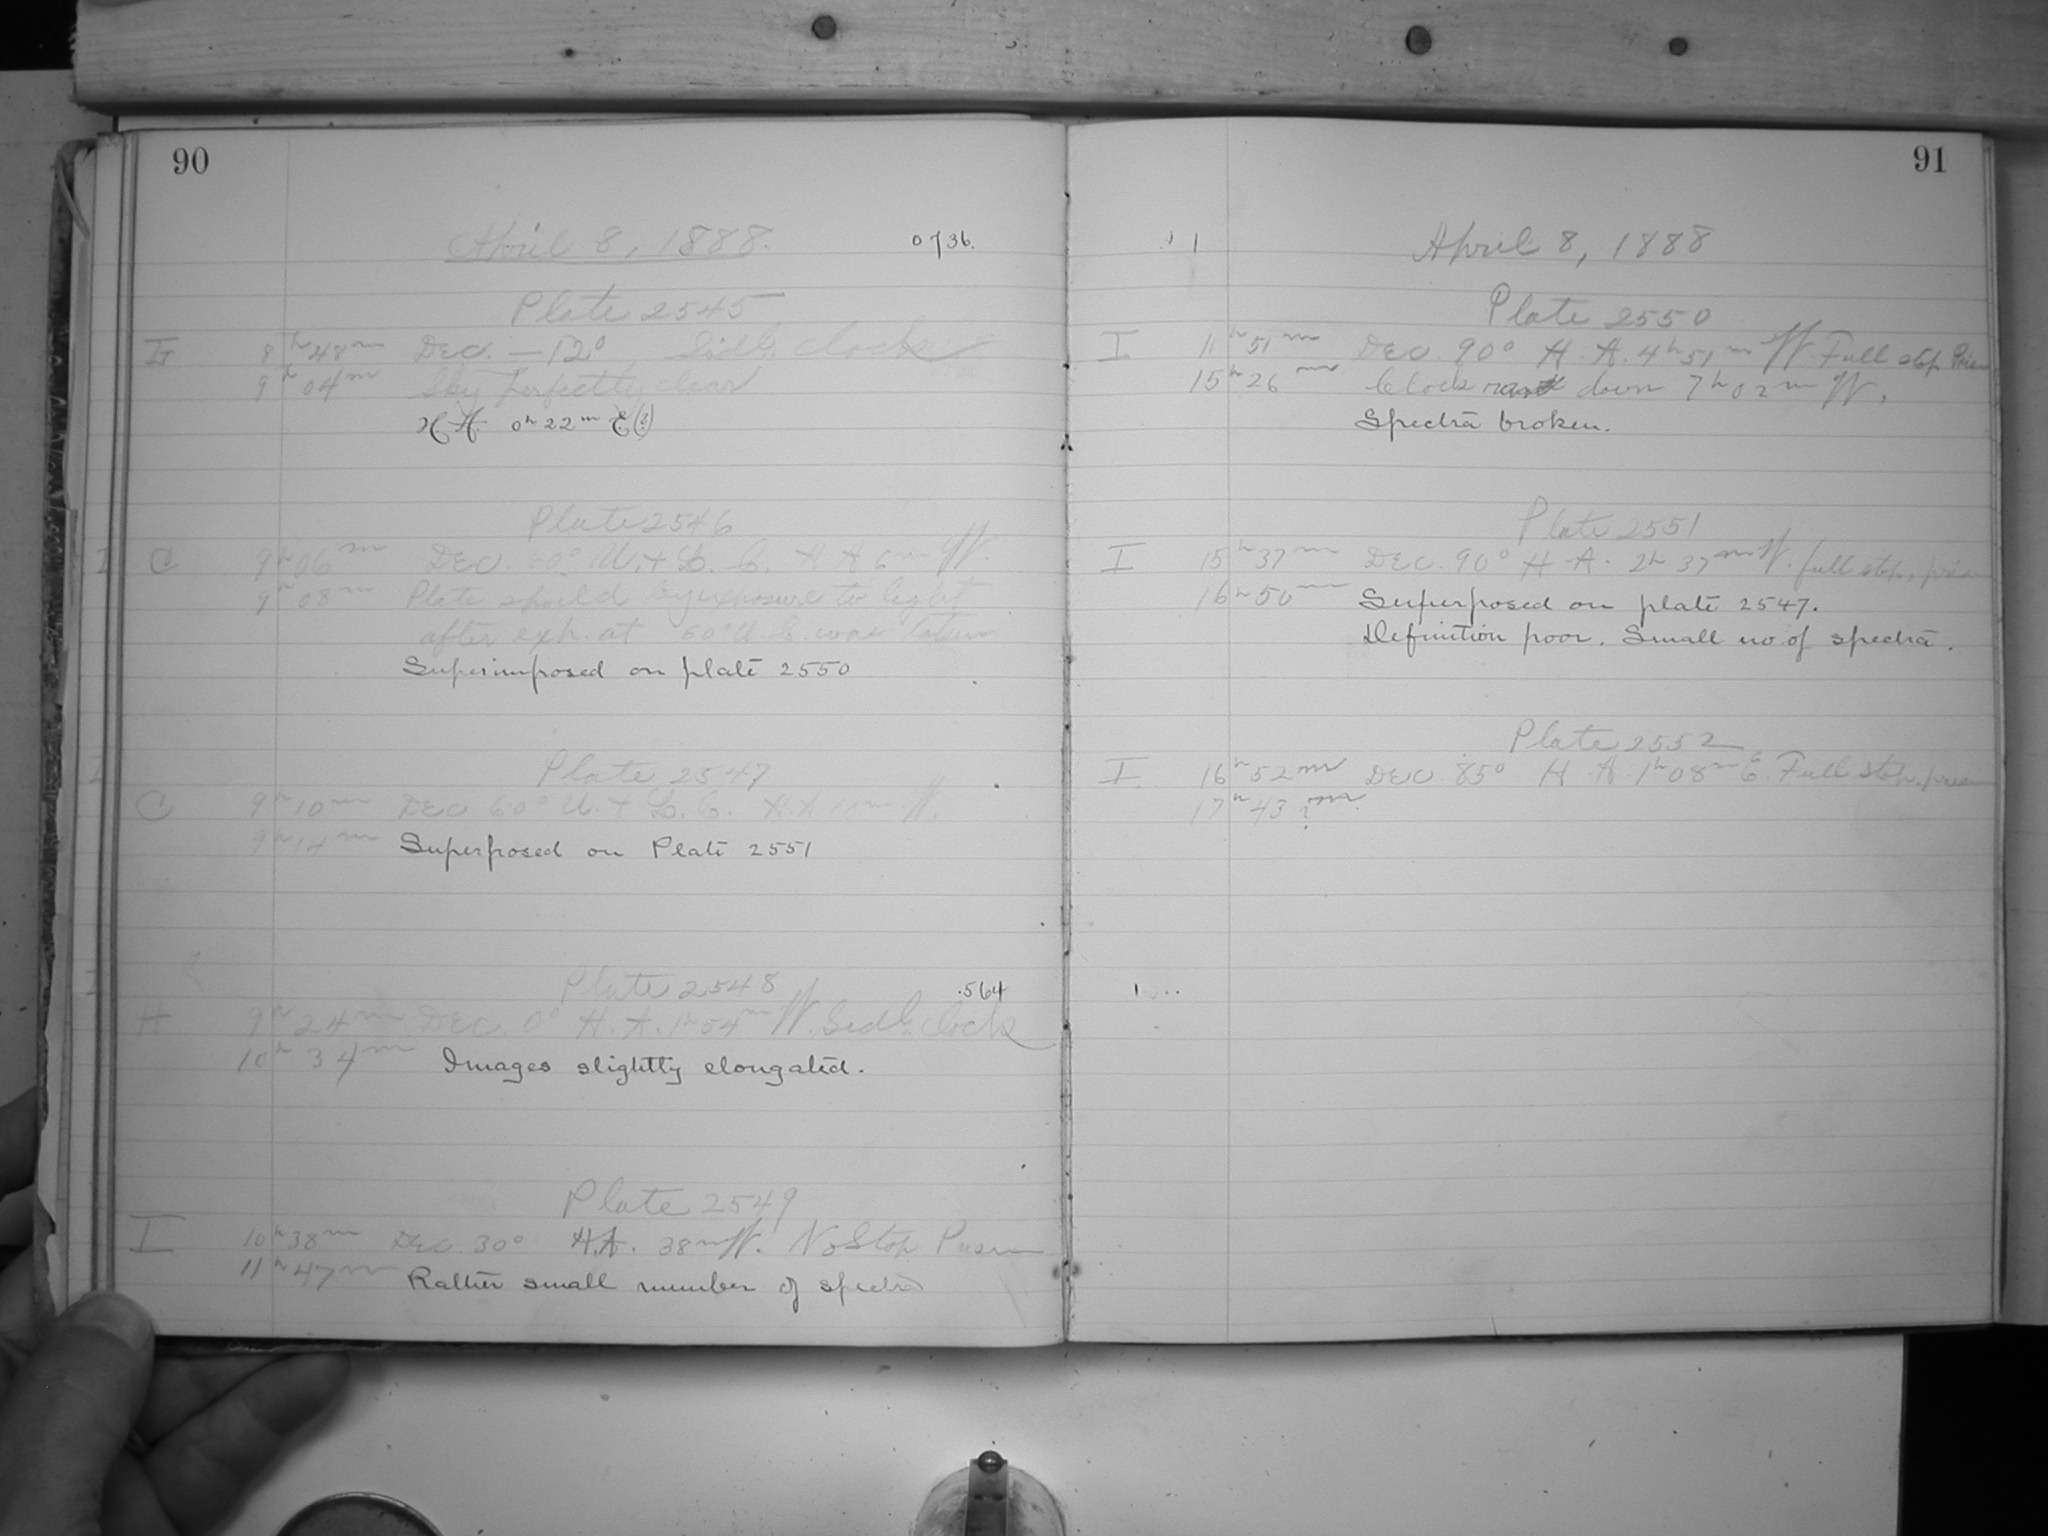 90
April 8, 1888.
0736.
Plate 2545
G 8h 48m Dec. —12° Sidl. Clock
9h 04m Sky perfectly clear
H. A. 0h 22m E(?)
Plate 2546
C 9h 06m Dec. 60° U. + L. C. H A 6m W.
9h 08m Plate spoiled by exposure to light
after exp. at 60° U. C. was taken
Superimposed on plate 2550
Plate 2547
C 9h 10m Dec 60° U. + L. C. H. A 10m W.
9h 14m Superposed on Plate 2551
Plate 2548
.564
H 9h 24m Dec. 0° H. A. 1h 54m W. Sidl. Clock
10h 34m Images slightly elongated.
Plate 2549
I 10h 38m Dec. 30° H.A. 38m W. No Stop Prism
11h 47m Rather small number of spectra
91
1
April 8, 1888
Plate 2550
I 11h 51m Dec. 90° H. A. 4h 51m W Full stop Prism
15h 26m Clock down 7h 02m W.
Spectra broken.
Plate 2551
I 15h 37m Dec. 90° H. A. 2h 37m W. full stop, prism
16h 50m Superposed on plate 2547.
Definition poor. Small no. of spectra.
Plate 2552
I 16h 52m Dec. 85° H. A. 1h 08m E. Full stop, prism
17h 43?m